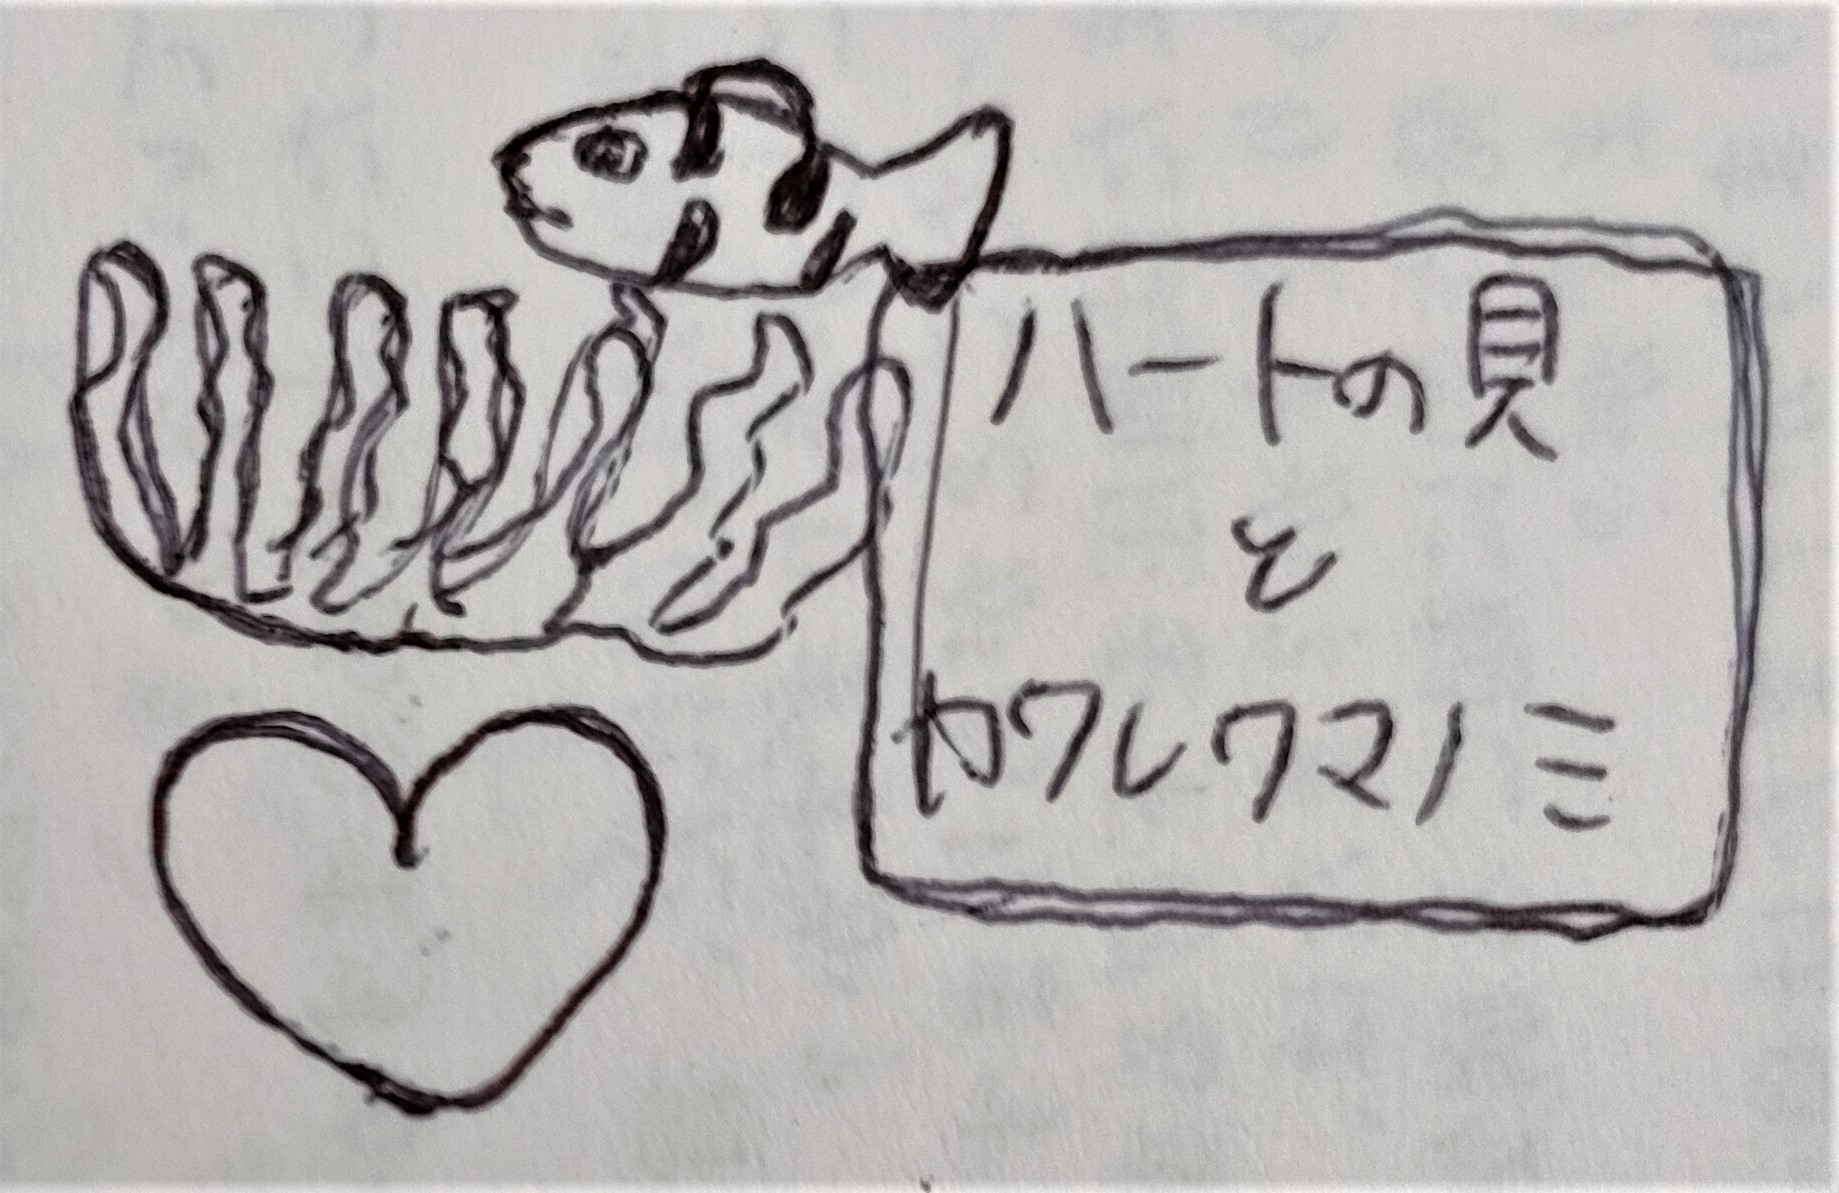 ハートの貝
と
カワレワマノミ